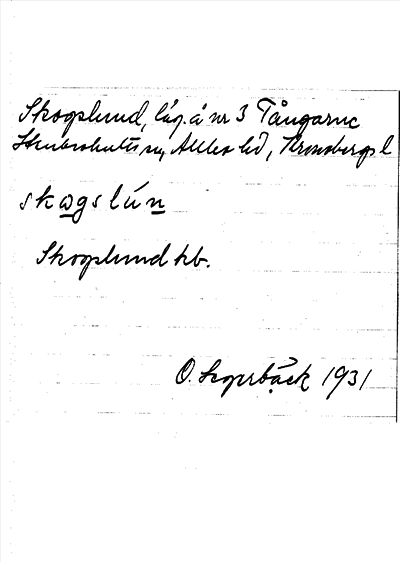 Skogslund, läg. å nr 3 Tångarne
Stenbrohults sn, Allbo hd, Kronobergs l
skagslún
Skogslund kb.
O. Sagerbäck 1931